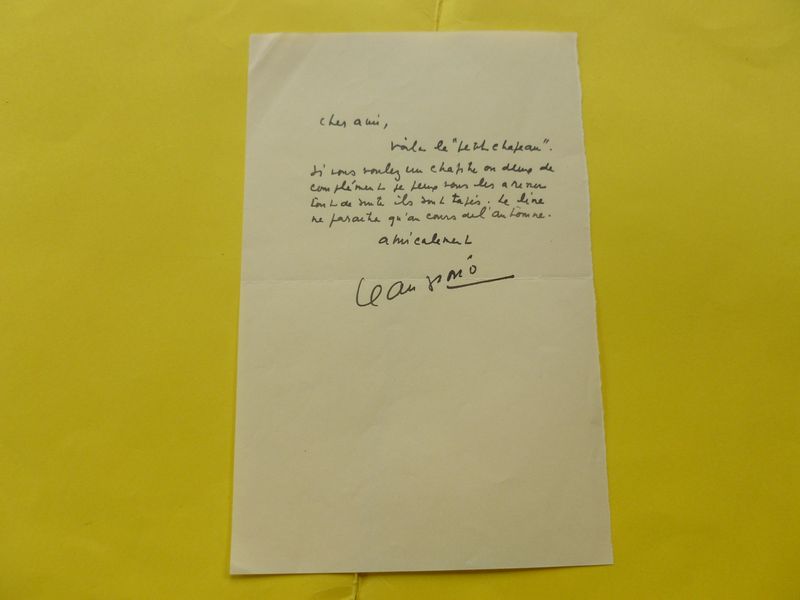 cher ami,
voila le "petit chapeau".
si vous voulez un chapitre ou deux de
complément je peux vous les
tout de suite ils sont tapés. Le livre
ne paraitra qu'au cours de l'automne.
amicalement
Jean Giono